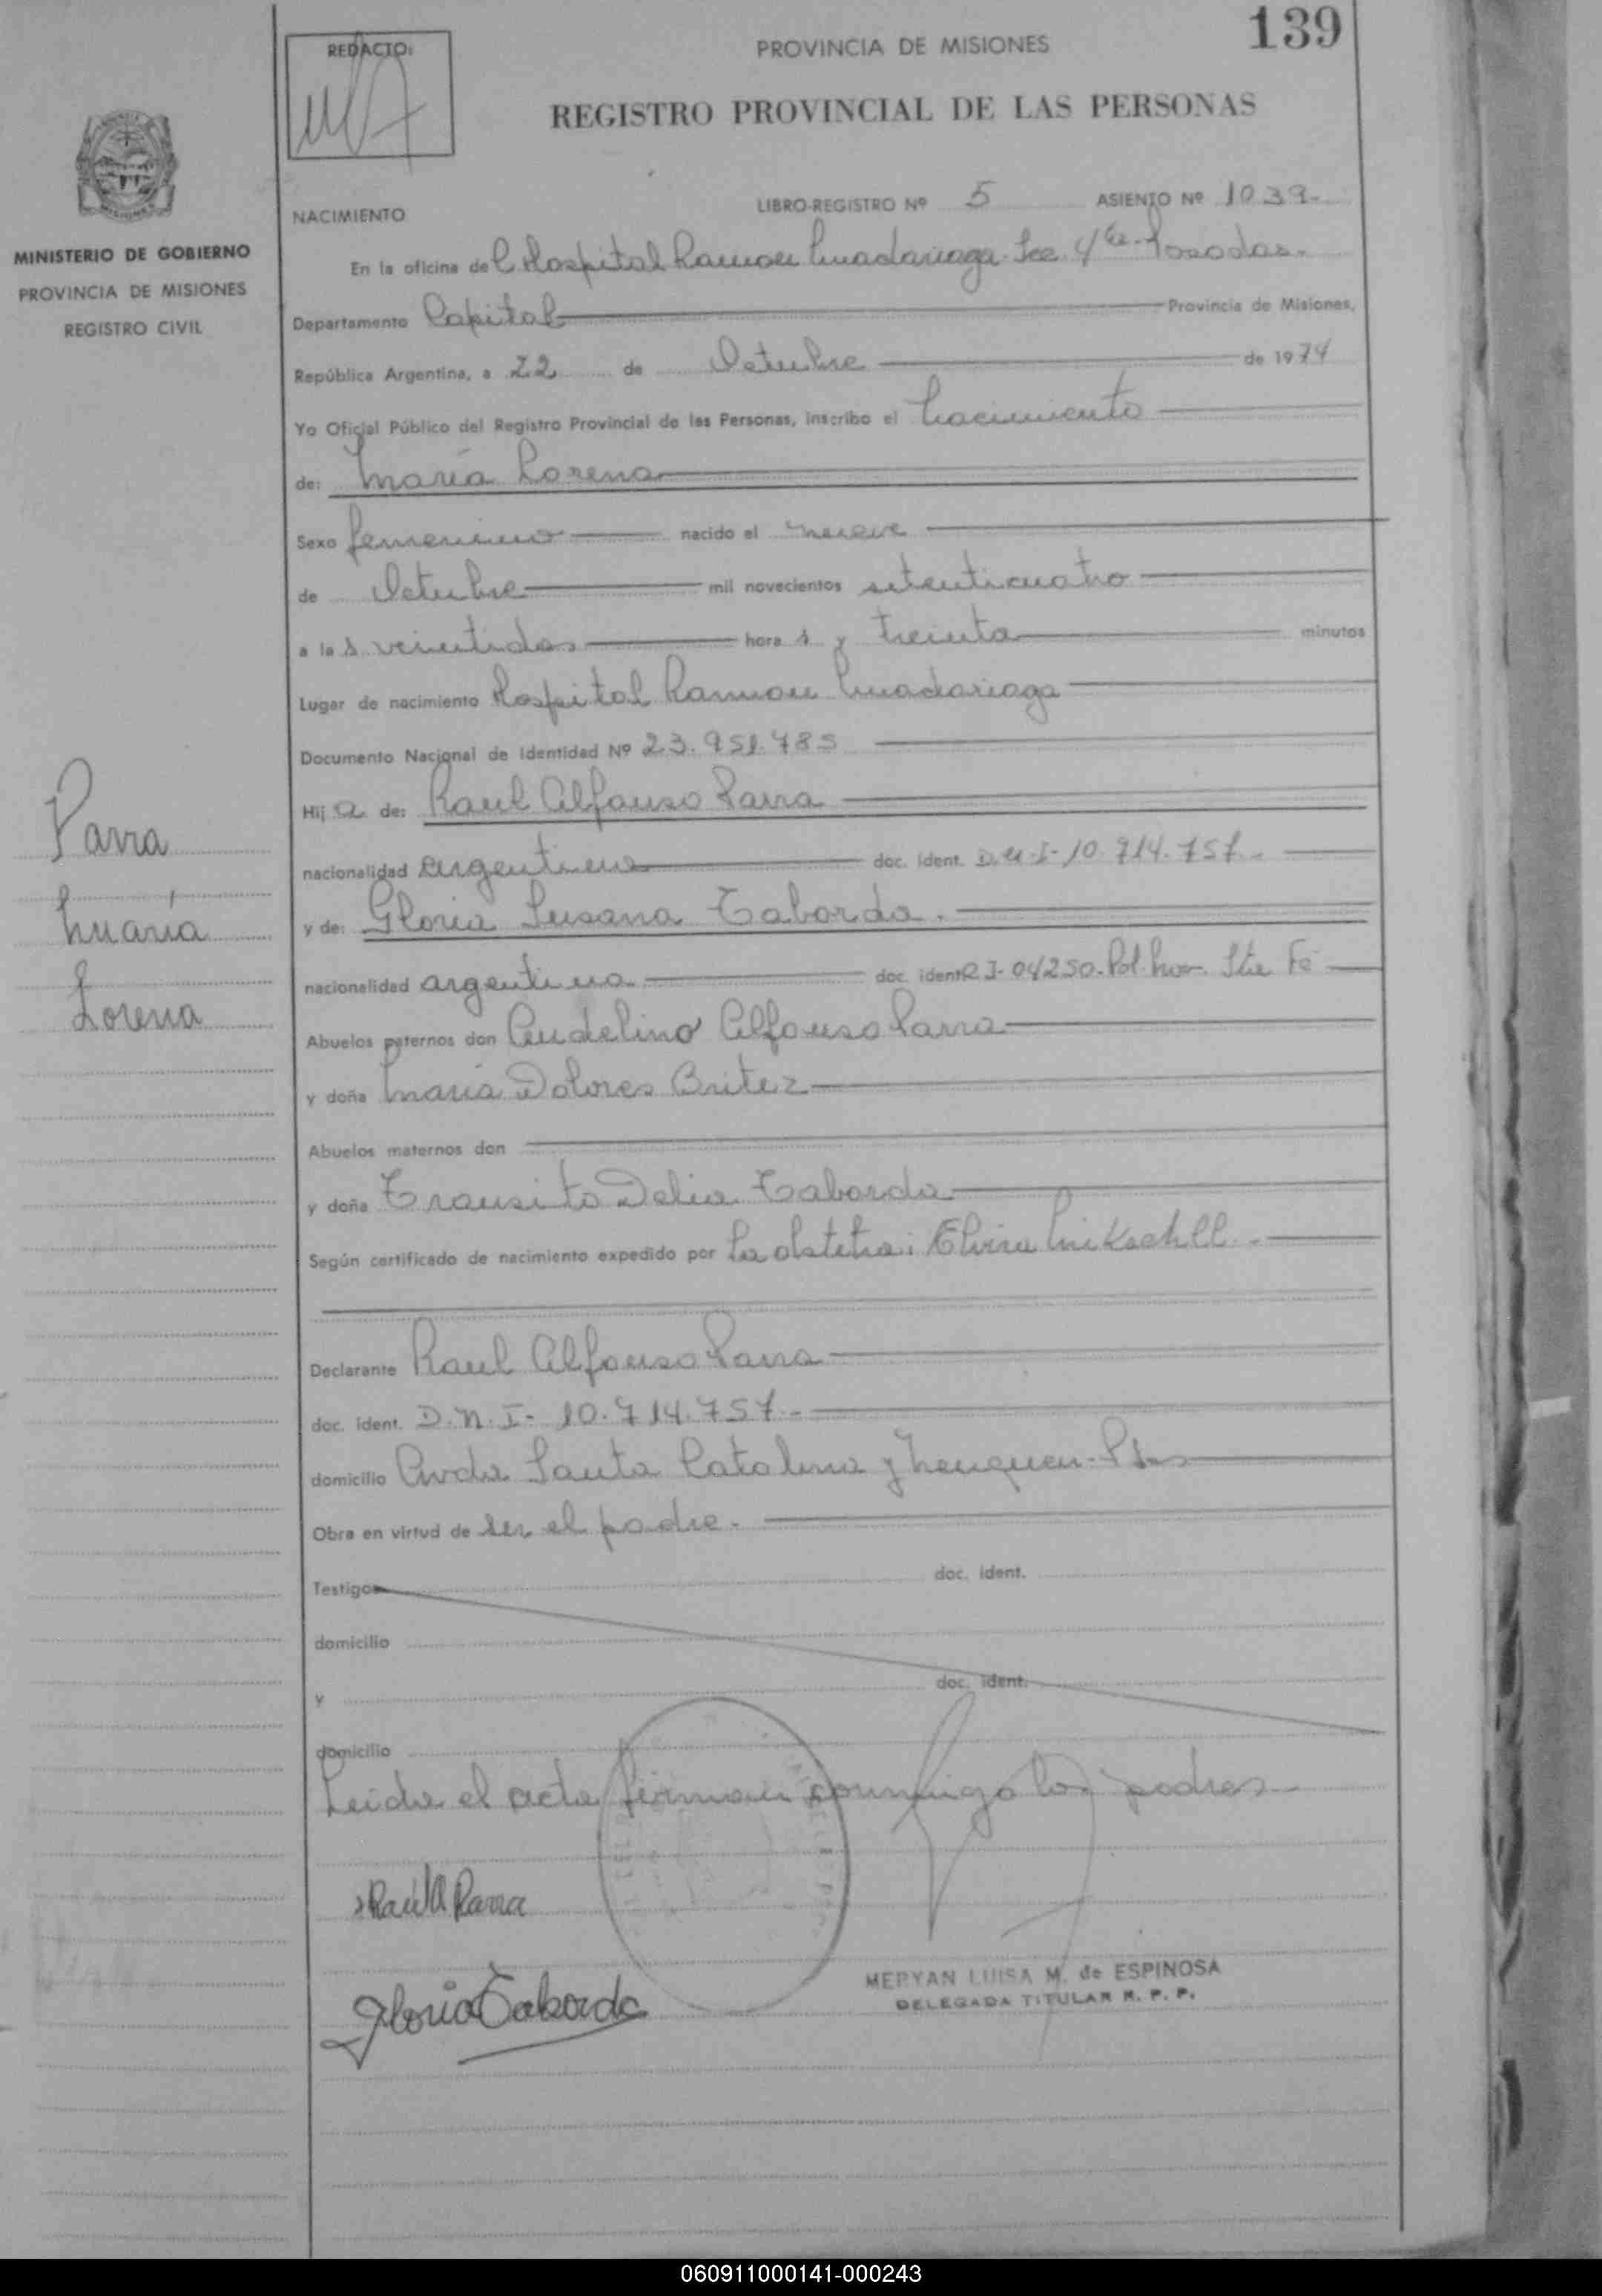 139
REDACTO:
PROVINCIA DE MISIONES
REGISTRO PROVINCIAL DE LAS PERSONAS
MINISTERIO DE GOBIERNO
PROVINCIA DE MISIONES
REGISTRO CIVIL
NACIMIENTO
LIBRO-REGISTRO Nº 5 ASIENTO Nº 1039-
En la oficina del Hospital Ramon Madariaga Sec 4ta Posadas-
Departamento Capital Provincia de Misiones,
República Argentina, a 22 de Octubre de 1974
Yo Oficial Público del Registro Provincial de las Personas, inscribo el nacimiento
de: María Lorena
Sexo femenino nacido el nueve
de Octubre mil novecientos setenticuatro
a las veintidos horas y treinta minutos
Lugar de nacimiento Hospital Ramon Madariaga
Documento Nacional de Identidad Nº 23.951.785
Hija de: Raul Alfonso Parra
nacionalidad argentino doc. ident. D.N.I- 10.714.757-
y de: Gloria Susana Taborda.
nacionalidad argentina doc. ident. 04250- Pol. Sta Fé
Abuelos paternos don Alfonso Parra
y doña María Dolores Britez
Abuelos maternos don
y doña Transito Delia Taborda
Según certificado de nacimiento expedido por la obstetra: Elvira
Declarante Raul Alfonso Parra
doc. ident. D.N.I- 10.714.757-
domicilio Avda Santa Catalina y Neuquen- Pdas
Obra en virtud de ser el padre.
Testigos doc. ident.
domicilio
y doc. ident.
domicilio
Leida el acta firman conmigo los padres
Raúl A Parra
Gloria Taborda
MERYAN LUISA M. de ESPINOSA
DELEGADA TITULAR R. P. P.
Parra
María
Lorena
060911000141-000243